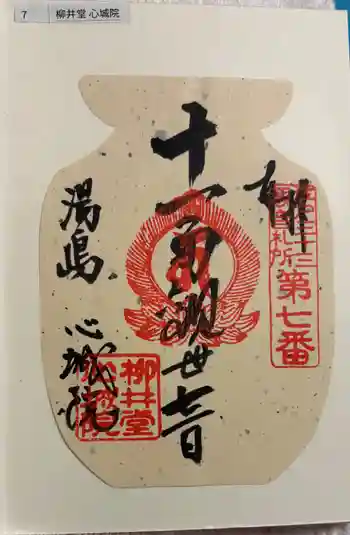 7 柳井堂 心城院
拝
第七番
十一面観世音
湯島 心城院
柳井堂
心城院